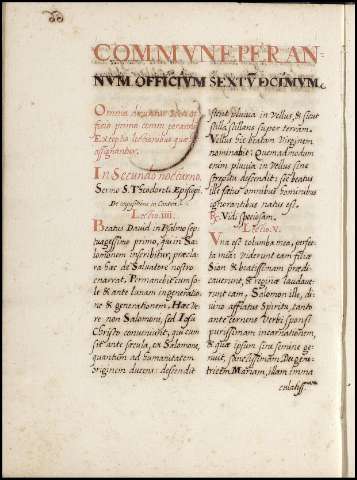 COMMVNE PER AN-
NVM OFFICIVM SEXTV̄ DCIMVM.
Omnia dicuntur
ficio primo comm
Exceptis lectionibus quæ
assignantur.
In Secundo nocturno.
Sermo S. Theodoreti Episcopi.
De expositione in Cantica.
Lectio. IIII.
Beatus David in Psalmo sep
tuagessimo primo, qui in Sa-
lomonem inscribitur, præcla
ra hæc de Salvatore nostro
enarrat. Permanebit cum so-
le & ante Lunam in generatio
ne & generationem. Hæc de
re non Salomoni, sed Iesu
Christo conveniunt, qui cum
sit ante sæcula, ex Salomone,
quantum ad humanitatem
originem ducens: descendit
sicut pluvia in Vellus, & sicut
stilla stillans super terram.
Vellus hic beatam Virginem
nominabit. Quemadmodum
enim pluvia in Vellus sine
strepitu descendit: sic beatus
ille fœtus omnibus hominibus
ignorantibus natus est.
℞. Vidi speciosam.
Lectio. V.
Vna est columba mea, perfec-
ta mea: viderunt eam filiæ
Sion & beatissimam prædi-
caverunt, & reginæ laudave-
runt eam, Salomon ille, di-
vino afflatus Spiritu, tant
ante cernens Verbi sponsi
purissimam incarnationem,
& quæ ipsum sine semine ge-
nuit, sanctissimam Dei geni-
tricem Mariam, illam imma
culatiss.